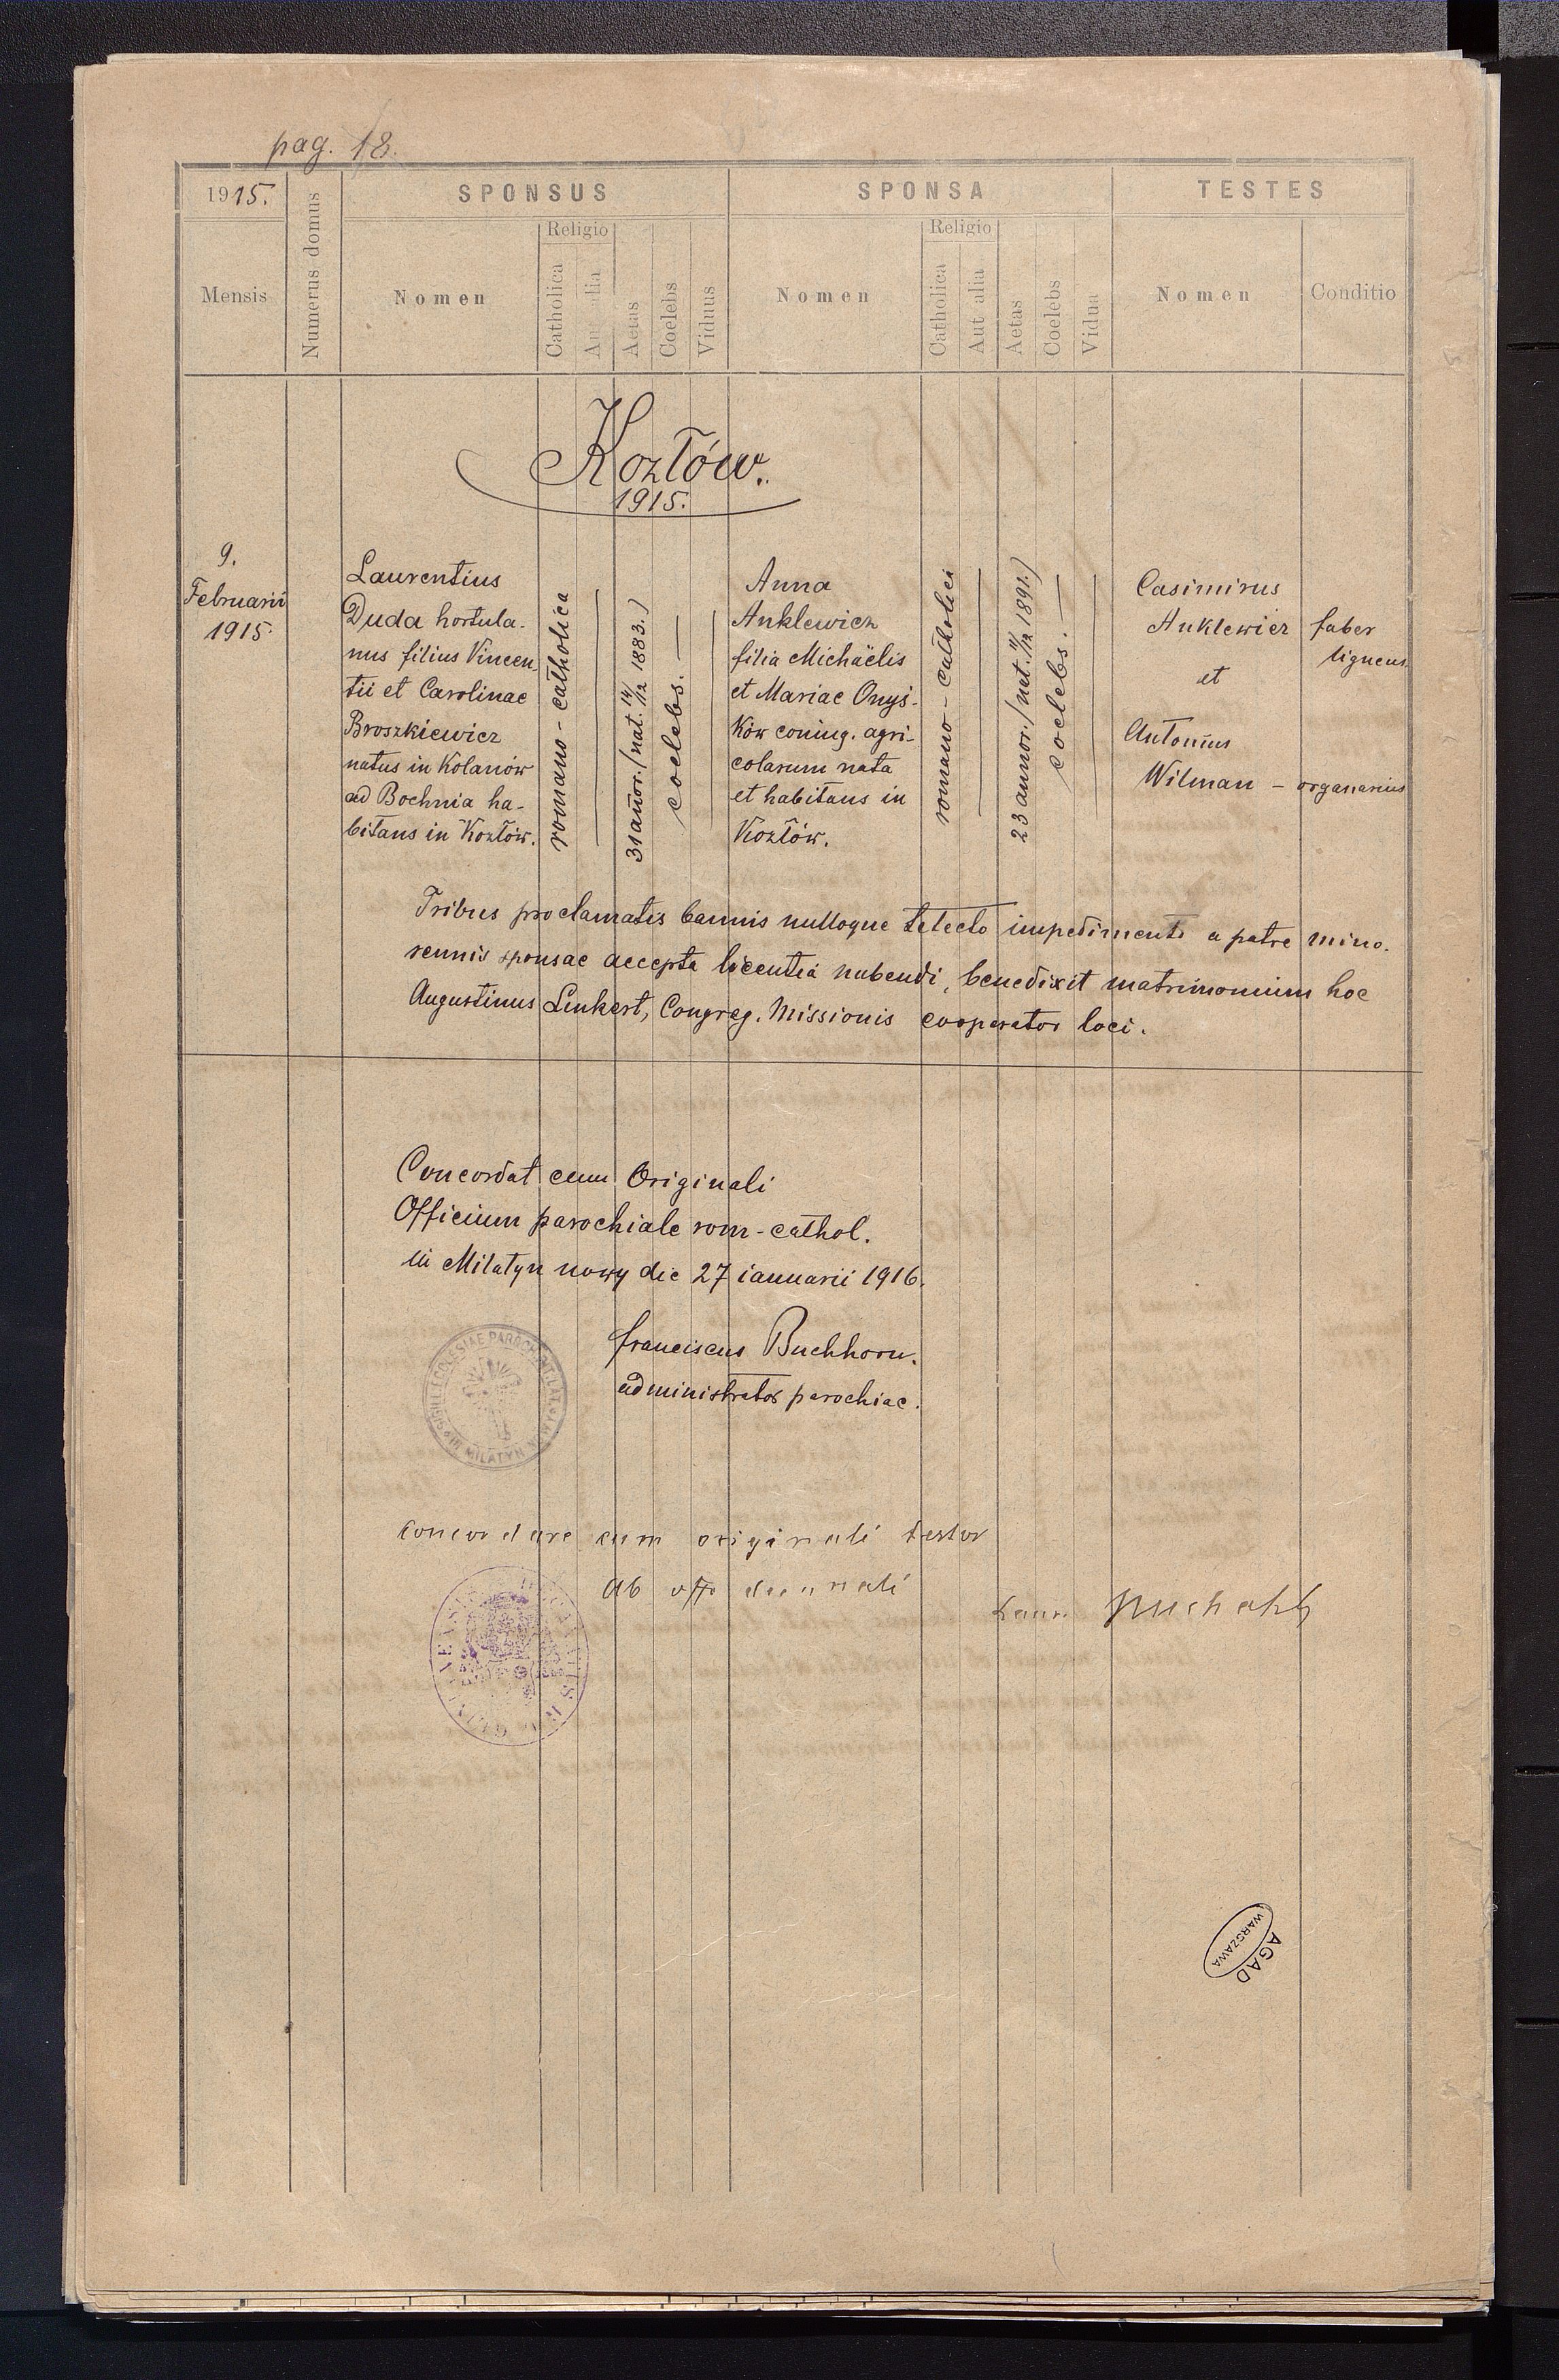 pag. 18.
1915.
SPONSUS
SPONSA
TESTES
Mensis
Numerus domus
Nomen
Religio
Catholica
Aut alia
Aetas
Coelebs
Viduus
Nomen
Religio
Catholica
Aut alia
Aetas
Coelebs
Vidua
Nomen
Conditio
Kozłów.
1915.
9.
Februarii
1915.
Laurentius
Duda hortula-
nus filius Vincen-
tii et Carolinae
Broszkiewicz
natus in Kolanów
ad Bochnia ha-
bitans in Kozłów.
romano-catholica
31 anor. (nat. 14/12 1883.)
coelebs.
Anna
Anklewicz
filia Michaëlis
et Mariae Onyś-
ków coniug. agri-
colarum nata
et habitans in
Kozłów.
romano-catholica
23 annor. (nat. 11/12 1891.)
coelebs.
Casimirus
Anklewicz faber
ligneus
et
Antonius
Wilman - organarius
Tribus proclamatis bannis nulloque detecto impedimento a patre mino-
rennis sponsae accepta licentia nubendi, benedixit matrimonium hoc
Augustinus Linkert, Congreg. Missionis cooperator loci.
Concordat cum Originali
Officium parochiale rom-cathol.
in Milatyn nowy die 27 ianuarii 1916.
Franciscus Buchhorn.
administrator parochiae.
SIGILL ECCLESIAE PAROCH MILATYN
concordare cum originali testor
Ab offo decanali
AGAD
WARSZAWA